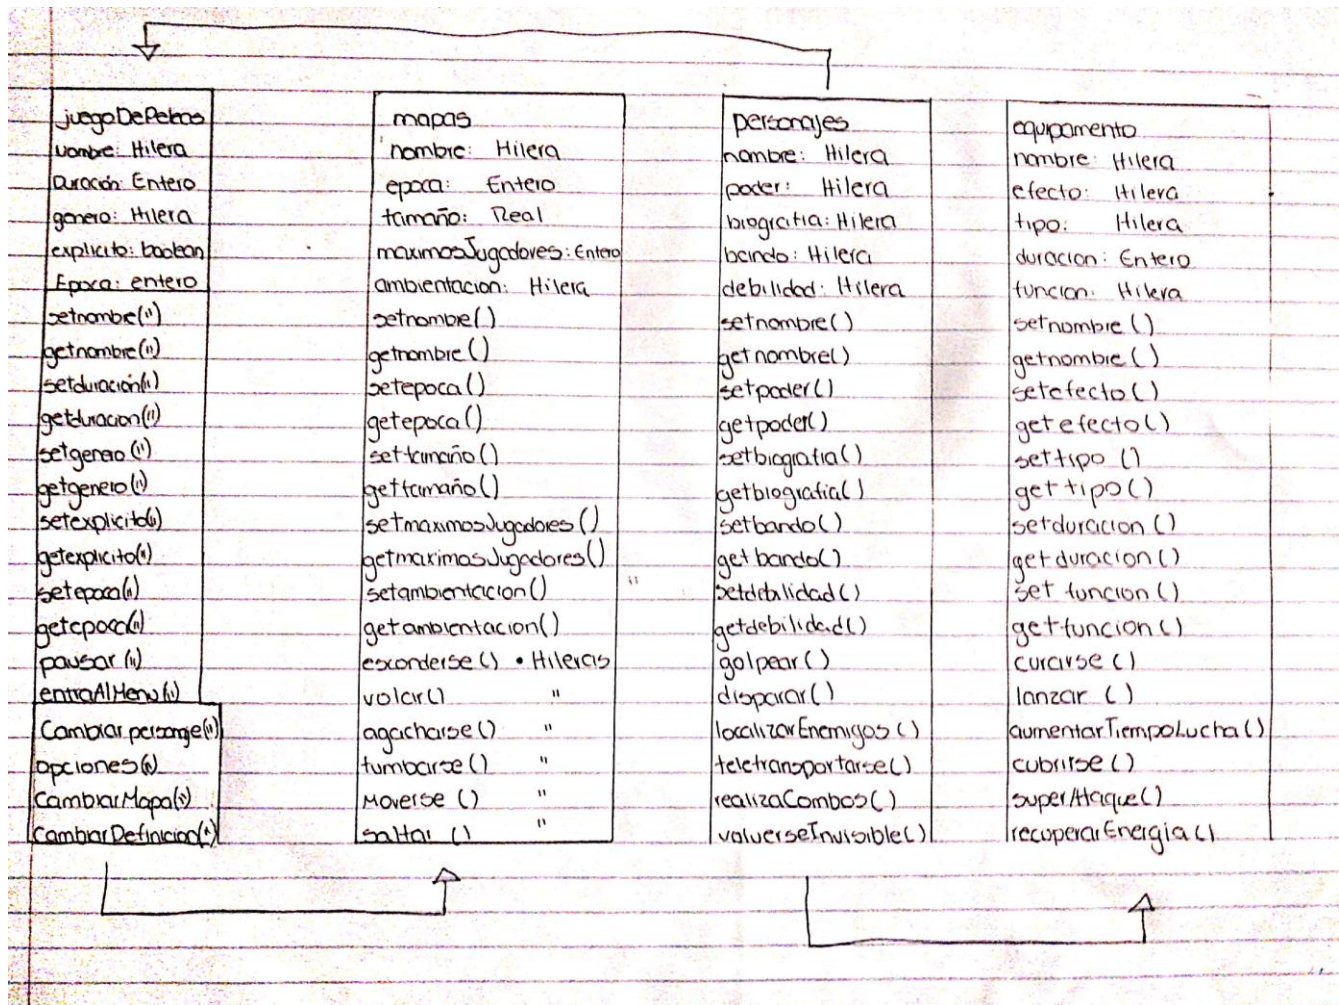 juegoDePeleas
nombre: Hilera
Duración: Entero
genero: Hilera
explicito: boolean
Epoca: entero
setnombre(")
getnombre(")
setduración(")
getduracion(")
setgenero(")
getgenero(")
setexplicito(")
getexplicito(")
setepoca(")
getepoca(")
pausar(")
entraAlMenu(")
Cambiar personaje(")
opciones(")
CambiarMapa(")
CambiarDefinicion(")
mapas
nombre: Hilera
epoca: Entero
tamaño: Real
maximosJugadores: Entero
ambientacion: Hilera
setnombre()
getnombre()
setepoca()
getepoca()
settamaño()
gettamaño()
setmaximosJugadores()
getmaximosJugadores()
setambientacion() "
getambientacion()
esconderse() • Hileras
volar() "
agacharse() "
tumbarse() "
Moverse () "
saltar () "
personajes
nombre: Hilera
poder: Hilera
biografia: Hilera
bando: Hilera
debilidad: Hilera
setnombre()
getnombre()
setpoder()
getpoder()
setbiografia()
getbiografia()
setbando()
getbando()
setdebilidad()
getdebilidad()
golpear()
disparar()
localizarEnemigos()
teletransportarse()
realizaCombos()
volverseInvisible()
equipamento
nombre: Hilera
efecto: Hilera
tipo: Hilera
duracion: Entero
funcion: Hilera
setnombre()
getnombre()
setefecto()
getefecto()
settipo ()
get tipo()
setduracion ()
getduracion ()
set funcion ()
getfuncion ()
curarse ()
lanzar ()
aumentarTiempoLucha()
cubrirse ()
superAtaque()
recuperarEnergia()